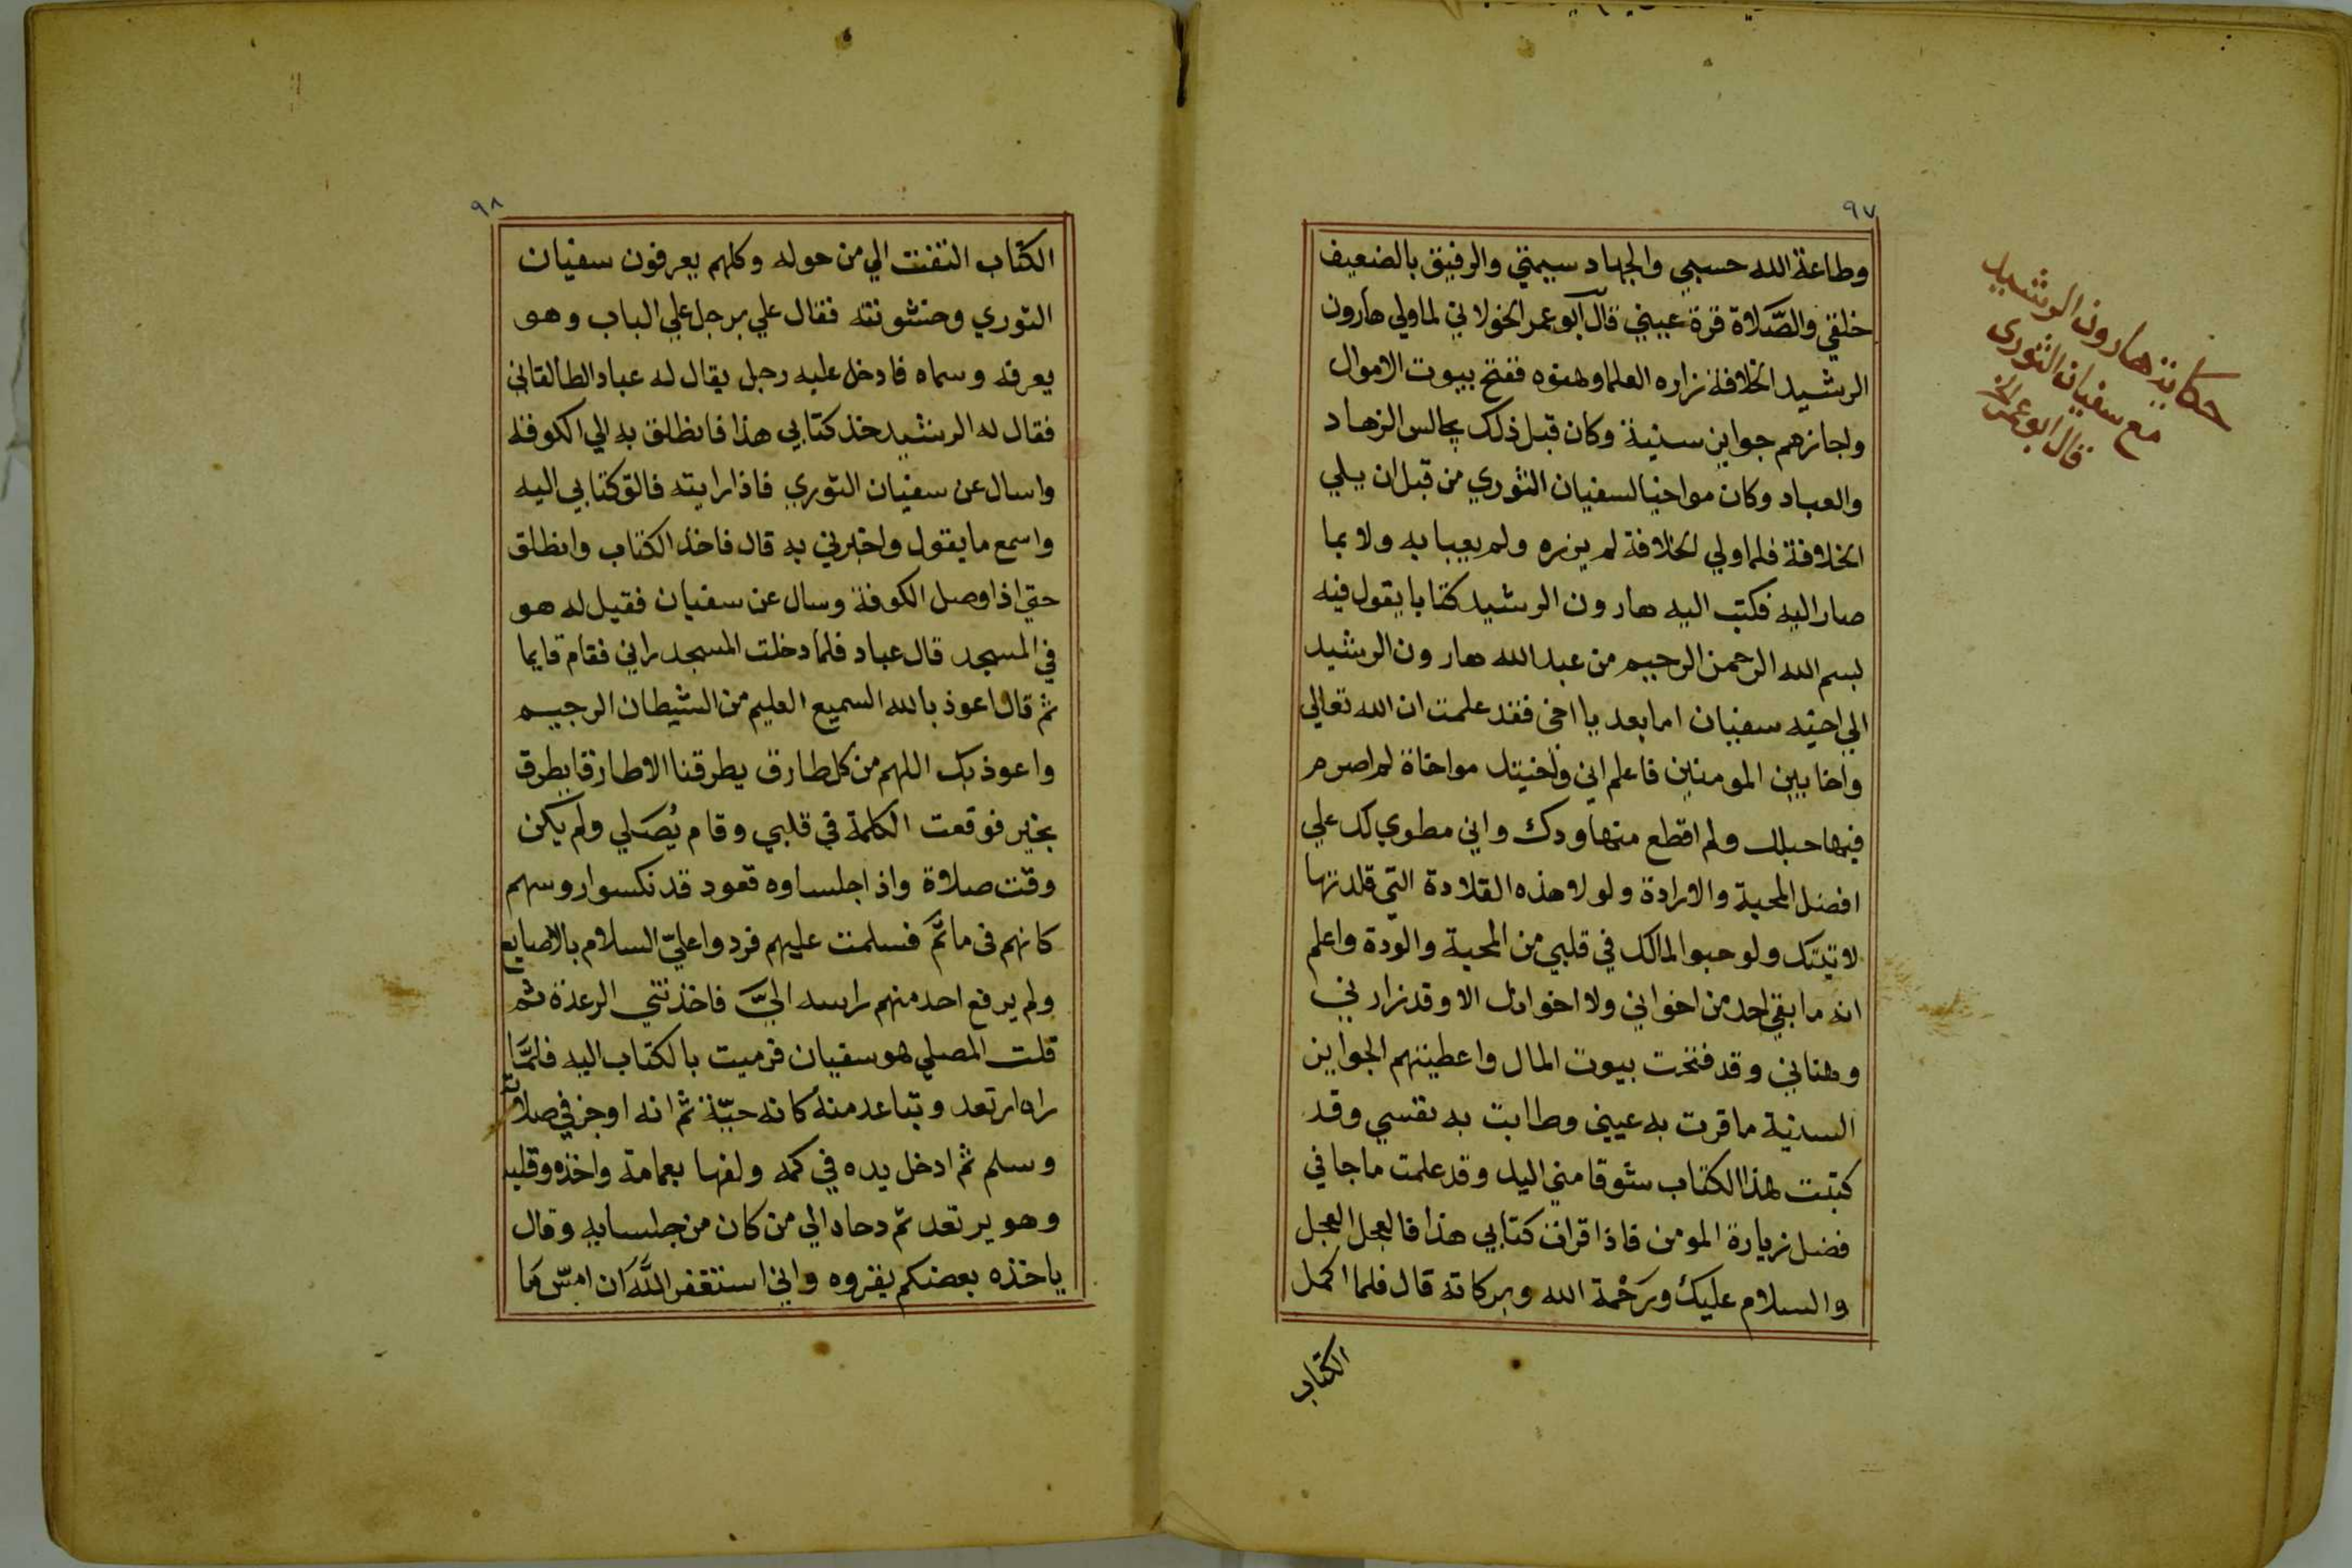 ٩٧
وطاعة الله حسبي والجهاد سيمتي والرفيق بالضعيف
خلقي والصَّلاة قرة عيني قال ابو عمر الخولاني لما ولي هارون
الرشيد الخلافة زاره العلما وهنوه ففتح بيوت الاموال
واجازهم جوايز سنية وكان قبل ذلك يجالس الزهاد
والعباد وكان مواخيا لسفيان الثوري من قبل ان يلي
الخلافة فلما ولي الخلافة لم يزره ولم يعبا به ولا بما
صار اليه فكتب اليه هارون الرشيد كتابا يقول فيه
بسم الله الرحمن الرحيم من عبد الله هارون الرشيد
الي اخيه سفيان اما بعد يا اخى فقد علمت ان الله تعالي
واخا بين المومنين فاعلم اني واخيتك مواخاة لم اصرم
فيها حبلك ولم اقطع منها ودك واني مطوي لك علي
افضل المحبة والارادة ولولا هذه القلادة التي قلدتها
لاتيتك ولو حبوا لمالك في قلبي من المحبة والودة واعلم
انه ما بقي احد من اخواني ولا اخوانك الا وقد زارني
وهناني وقد فتحت بيوت المال واعطيتهم الجوايز
السنية ما قرت به عيني وطابت به نفسي وقد
كتبت هذا الكتاب شوقا مني اليك وقد علمت ما جا في
فضل زيارة المومن فاذا قرات كتابي هذا فالعجل العجل
والسلام عليك ورَحْمة الله وبركاته قال فلما اكمل
الكتاب
حكاية هارون الرشيد
مع سفيان الثورى
قال ابو عمر
٩٨
الكتاب التفت الي من حوله وكلهم يعرفون سفيان
الثوري وخشونته فقال علي برجل علي الباب وهو
يعرفه وسماه فادخل عليه رجل يقال له عباد الطالقاني
فقال له الرشيد خذ كتابي هذا فانطلق به الي الكوفة
واسال عن سفيان الثوري فاذا رايته فالق كتابي اليه
واسمع ما يقول واخبرني به قال فاخذ الكتاب وانطلق
حتي اذا وصل الكوفة وسال عن سفيان فقيل له هو
في المسجد قال عباد فلما دخلت المسجد راني فقام قايما
ثم قال اعوذ بالله السميع العليم من الشيطان الرجيم
واعوذ بك اللهم من كل طارق يطرقنا الا طارقا يطرق
بخير فوقعت الكلمة في قلبي وقام يُصَلي ولم يكن
وقت صلاة واذا جلساوه قعود قد نكسوا روسهم
كانهم فى ماتم فسلمت عليهم فردوا عليّ السلام بالاصابع
ولم يرفع احد منهم راسه اليَّ فاخذتني الرعدة ثم
قلت المصلي هو سفيان فرميت بالكتاب اليه فلمَّا
راه ارتعد وتباعد منه كانه حيّة ثم انه اوجز في صلاته
وسلم ثم ادخل يده في كمه ولفها بعمامة واخذه وقلبه
وهو يرتعد ثم دحاه الي من كان من جلسايه وقال
ياخذه بعضكم يقروه واني استغفر اللَّه ان امسّ ما